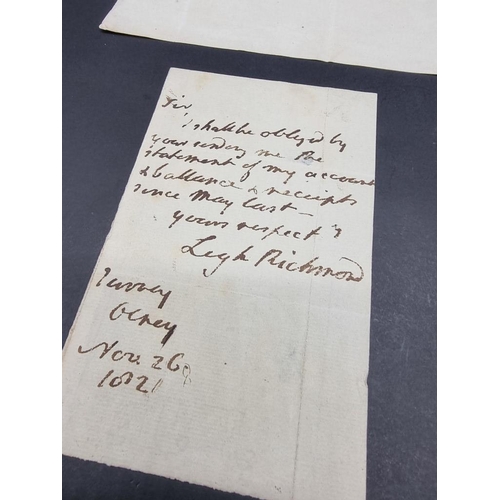 Sir
I shall be obliged by
your sending me the
statement of my account
& ballance & receipts
since May last —
yours respect'y
Legh Richmond
Turvey
Olney
Nov. 26
1821